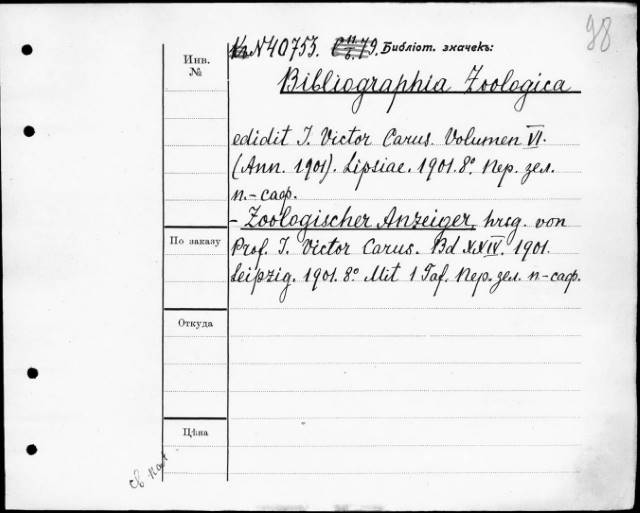 98
№ 40753. Библіот. значекъ:
Инв. №
Bibliographia Zoologica
edidit J. Victor Carus. Volumen VI.
(Ann. 1901). Lipsiae. 1901. 8° Пер. зел.
п.-саф.
- Zoologischer Anzeiger, hrsg. von
По заказу
Prof. J. Victor Carus. Bd XXIV. 1901.
Leipzig. 1901. 8° Mit 1 Taf. Пер. зел. п-саф.
Откуда
Цѣна